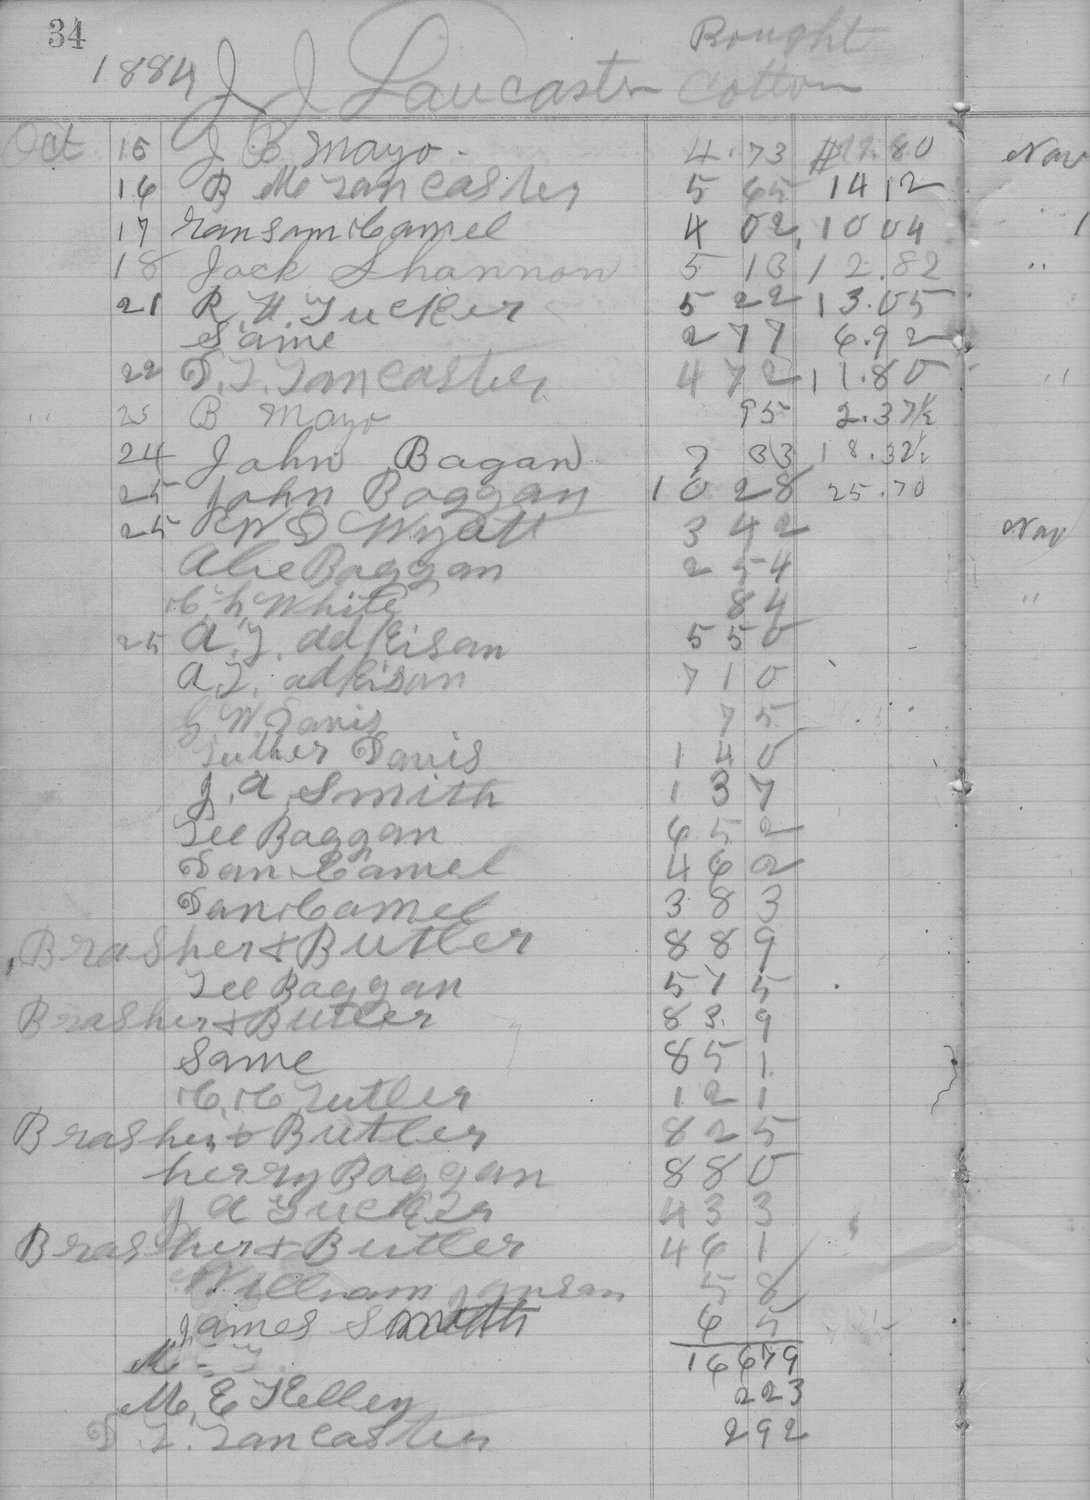 34
1884 J J Lancaster Bought Cotton
Oct 15 J B Mayo 4 73 $11.80 Nov
16 B M Lancaster 5 65 14 12
17 Ransom Camel 4 02 10 04 " 1
18 Jack Shannon 5 13 12.82 "
21 R. H. Tucker 5 22 13.05
Same 2 77 6.92
22 D. L. Lancaster 4 72 11.80 "
" 25 B Mayo 95 2.37½
24 John Bagan 7 33 18.32½
25 John Baggan 10 28 25.70
25 W D Wyatt 3 42 Nov
Abe Baggan 2 54
C. h. White 84 "
25 A. J. adkisan 5 50
A. J. adkisan 7 10
G W Davis 75
Luther Davis 1 40
J. A. Smith 1 37
Lee Baggan 6 52
Dan Camel 4 62
Dan Camel 3 83
Brasher & Butler 8 89
Lee Baggan 5 75
Brasher & Butler 8 39
Same 8 51
C. C. Butler 1 21
Brasher & Butler 8 25
herry Baggan 8 80
J A Tucker 4 33
Brasher & Butler 4 61
William 58
James Smith 65
M 16 679
M. E Kelley 223
D. L. Lancaster 292